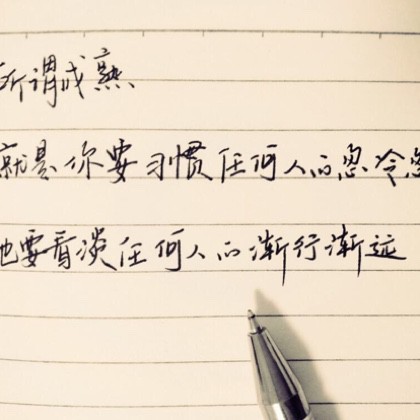 所谓成熟
就是你要习惯任何人的忽冷忽
也要看淡任何人的渐行渐远